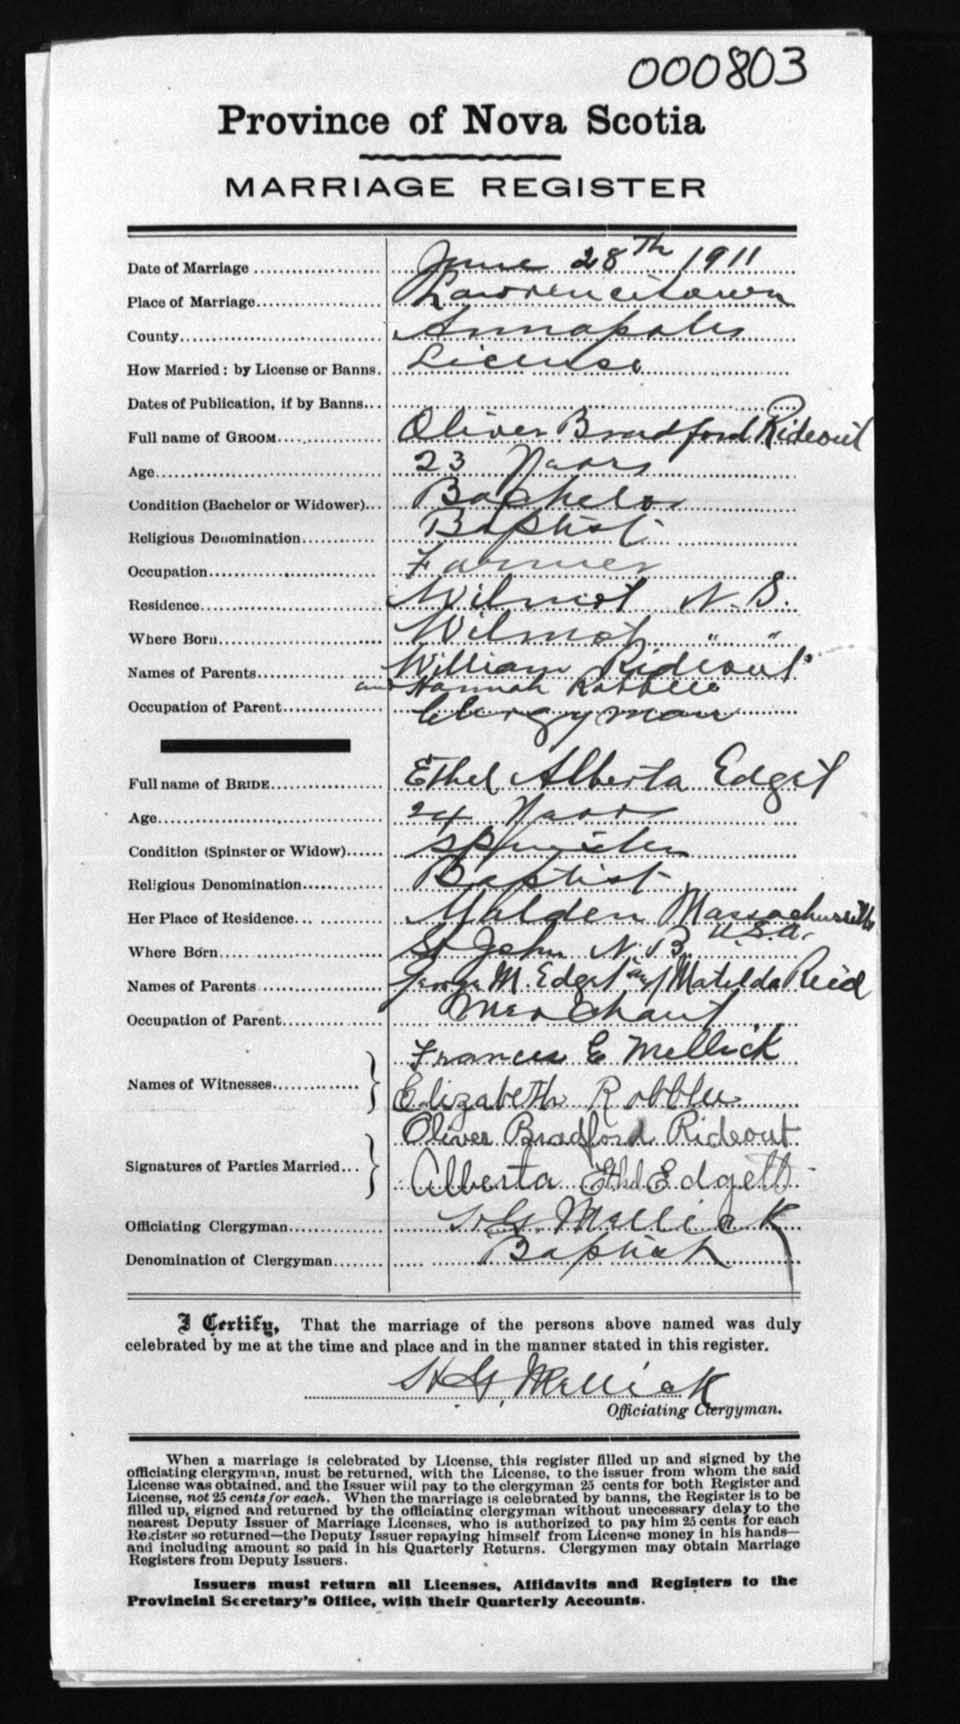 000803
Province of Nova Scotia
MARRIAGE REGISTER
Date of Marriage ................... June 28Th 1911
Place of Marriage................... Lawrencetown
County................... Annapolis
How Married: by License or Banns. License
Dates of Publication, if by Banns...
Full name of GROOM................... Oliver Bradford Rideout
Age................... 23 Years
Condition (Bachelor or Widower)... Bachelor
Religious Denomination............ Baptist
Occupation................... Farmer
Residence................... Wilmot N.S.
Where Born................... Wilmot " "
Names of Parents................... William Rideout
and Hannah
Occupation of Parent............... Clergyman
Full name of BRIDE................... Ethel Alberta Edgit
Age................... 24 Years
Condition (Spinster or Widow)...... Spinster
Religious Denomination............ Baptist
Her Place of Residence............ Malden Massachusetts
U.S.A.
Where Born................... St John N.B.
Names of Parents................... George M. Edget and Matilda Reid
Occupation of Parent............... Merchant
Francis E Mellick
Names of Witnesses.............. } Elizabeth
Oliver Bradford Rideout
Signatures of Parties Married... } Alberta Ethel Edgett
Officiating Clergyman............ H.G. Mellick
Denomination of Clergyman........ Baptist
I Certify, That the marriage of the persons above named was duly
celebrated by me at the time and place and in the manner stated in this register.
H G Mellick
Officiating Clergyman.
When a marriage is celebrated by License, this register filled up and signed by the
officiating clergyman, must be returned, with the License, to the issuer from whom the said
License was obtained, and the Issuer will pay to the clergyman 25 cents for both Register and
License, not 25 cents for each. When the marriage is celebrated by banns, the Register is to be
filled up, signed and returned by the officiating clergyman without unnecessary delay to the
nearest Deputy Issuer of Marriage Licenses, who is authorized to pay him 25 cents for each
Register so returned—the Deputy Issuer repaying himself from License money in his hands—
and including amount so paid in his Quarterly Returns. Clergymen may obtain Marriage
Registers from Deputy Issuers.
Issuers must return all Licenses, Affidavits and Registers to the
Provincial Secretary's Office, with their Quarterly Accounts.